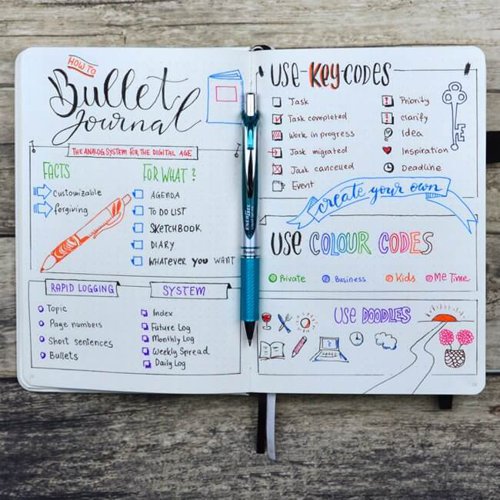 HOW TO
Bullet
Journal
THE ANALOG SYSTEM FOR THE DIGITAL AGE
FACTS
Customizable
forgiving
FOR WHAT?
AGENDA
TO DO LIST
SKETCHBOOK
DIARY
WHATEVER YOU WANT
RAPID LOGGING
Topic
Page numbers
Short sentences
Bullets
SYSTEM
Index
Future Log
Monthly Log
Weekly Spread
Daily Log
USE-KEY-CODES
Task
Task completed
Work in progress
Task migrated
Task cancelled
Event
Priority
Clarify
Idea
Inspiration
Deadline
create your own
USE COLOUR CODES
Private
Business
Kids
Me Time
USE DOODLES